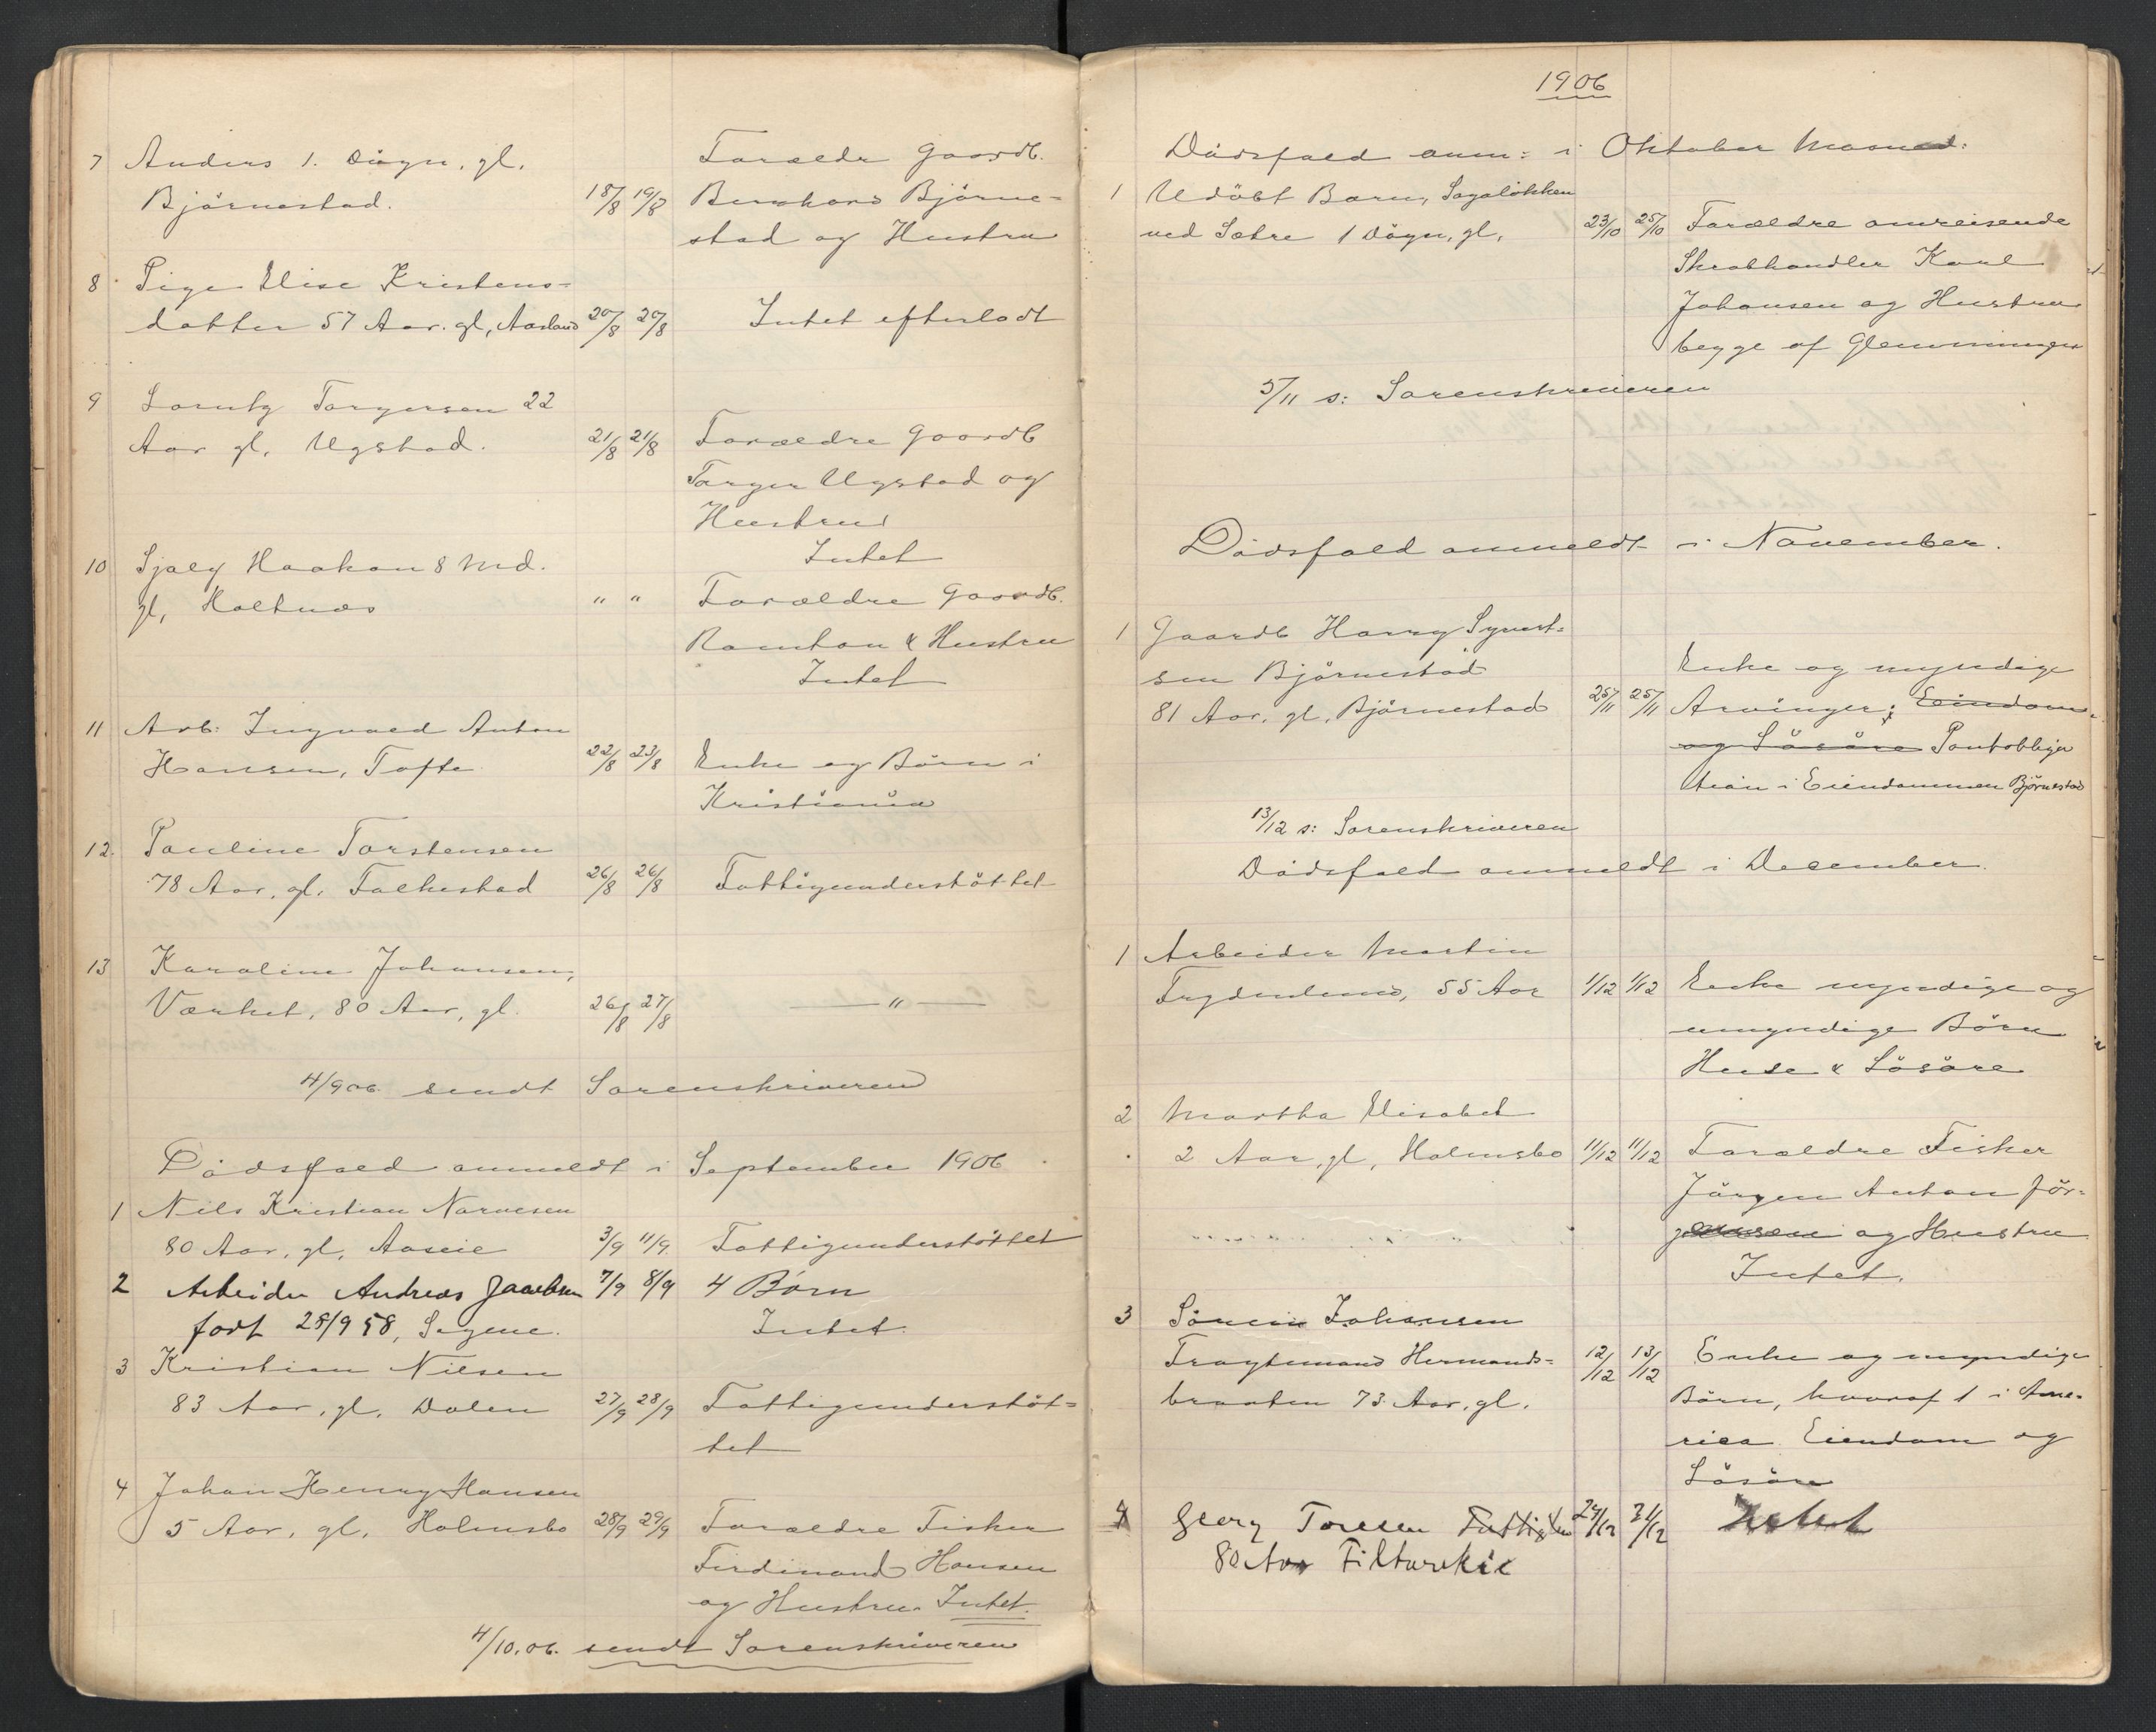 7 Anders 1. Døgn. gl.
Bjørnestad. 18/8 19/8
Forældr Gaardb.
Bernhard Bjørne=
stad og Hustru
8 Pige Elise Kristens=
datter 57 Aar. gl, Aasland 20/8 20/8 Intet efterladt
9 Lorntz Torgersen 22
Aar gl. Ugstad. 21/8 21/8 Forældre Gaardb
Torger Ugstad og
Hustru
Intet
10 Haakon 8 Md.
gl, Holtnæs " " Forældre Gaardb.
Ramton & Hustru
Intet
11 Arb: Ingvald Anton
Hansen, Tofte 22/8 23/8 Enke og Börn i
Kristiania
12. Pauline Torstensen
78 Aar, gl. Falkestad 26/8 26/8 Fattigunderstöttet
13 Karoline Johansen,
Værket, 80 Aar, gl. 26/8 27/8 — " —
4/9 06. sendt Sorenskriveren
Dödsfald anmeldt i September 1906
1 Nils Kristian Narvesen
80 Aar, gl, Aaseie 3/9 11/9 Fattigunderstöttet
2 Arbeider Andreas Jacobsen 7/9 8/9 4 Börn
født 28/9 58, Sagene. Intet.
3 Kristian Nilsen
83 Aar, gl, Dalen 27/9 28/9 Fattigunderstöt=
tet
4 Johan Henry Hansen
5 Aar, gl, Holmsbo 28/9 29/9 Forældre Fisker
Ferdinand Hansen
og Hustru Intet.
4/10.06. sendt Sorenskriveren
1906
Dödsfald anm: i Oktober Maaned:
1 Udöbt Barn, Sagaløkken
ved Sætre 1 Dögn, gl, 23/10 25/10 Forældre omreisende
Skrabhandler Karl
Johansen og Hustru
begge af Glemminge
5/11 s: Sorenskriveren
Dödsfald anmeldt i November.
1 Gaardb Harry Syvert=
sen Bjørnestad Enke og myndige
81 Aar, gl, Bjørnestad 25/11 25/11 Arvinger; Eiendom
og Lösöre Pantobliga
tion i Eiendommen Bjørnestad
13/12 s: Sorenskriveren
Dödsfald anmeldt i December.
1 Arbeider Martin
Frydenlund, 55 Aar 1/12 1/12 Enke myndige og
umyndige Börn
Huse & Lösöre
2 Martha Elisabet
2 Aar, gl, Holmsbo 11/12 11/12 Forældre Fisker
Jörgen Anton Jör=
gensen og Hustru
Intet.
3 Johansen
Hermands= 12/12 13/12 Enke og myndige
braaten 73 Aar, gl. Börn, hvoraf 1 i Ame=
rica Eiendom og
Lösöre
4 Georg Toresen 24/12 31/12 Intet
80 Aar